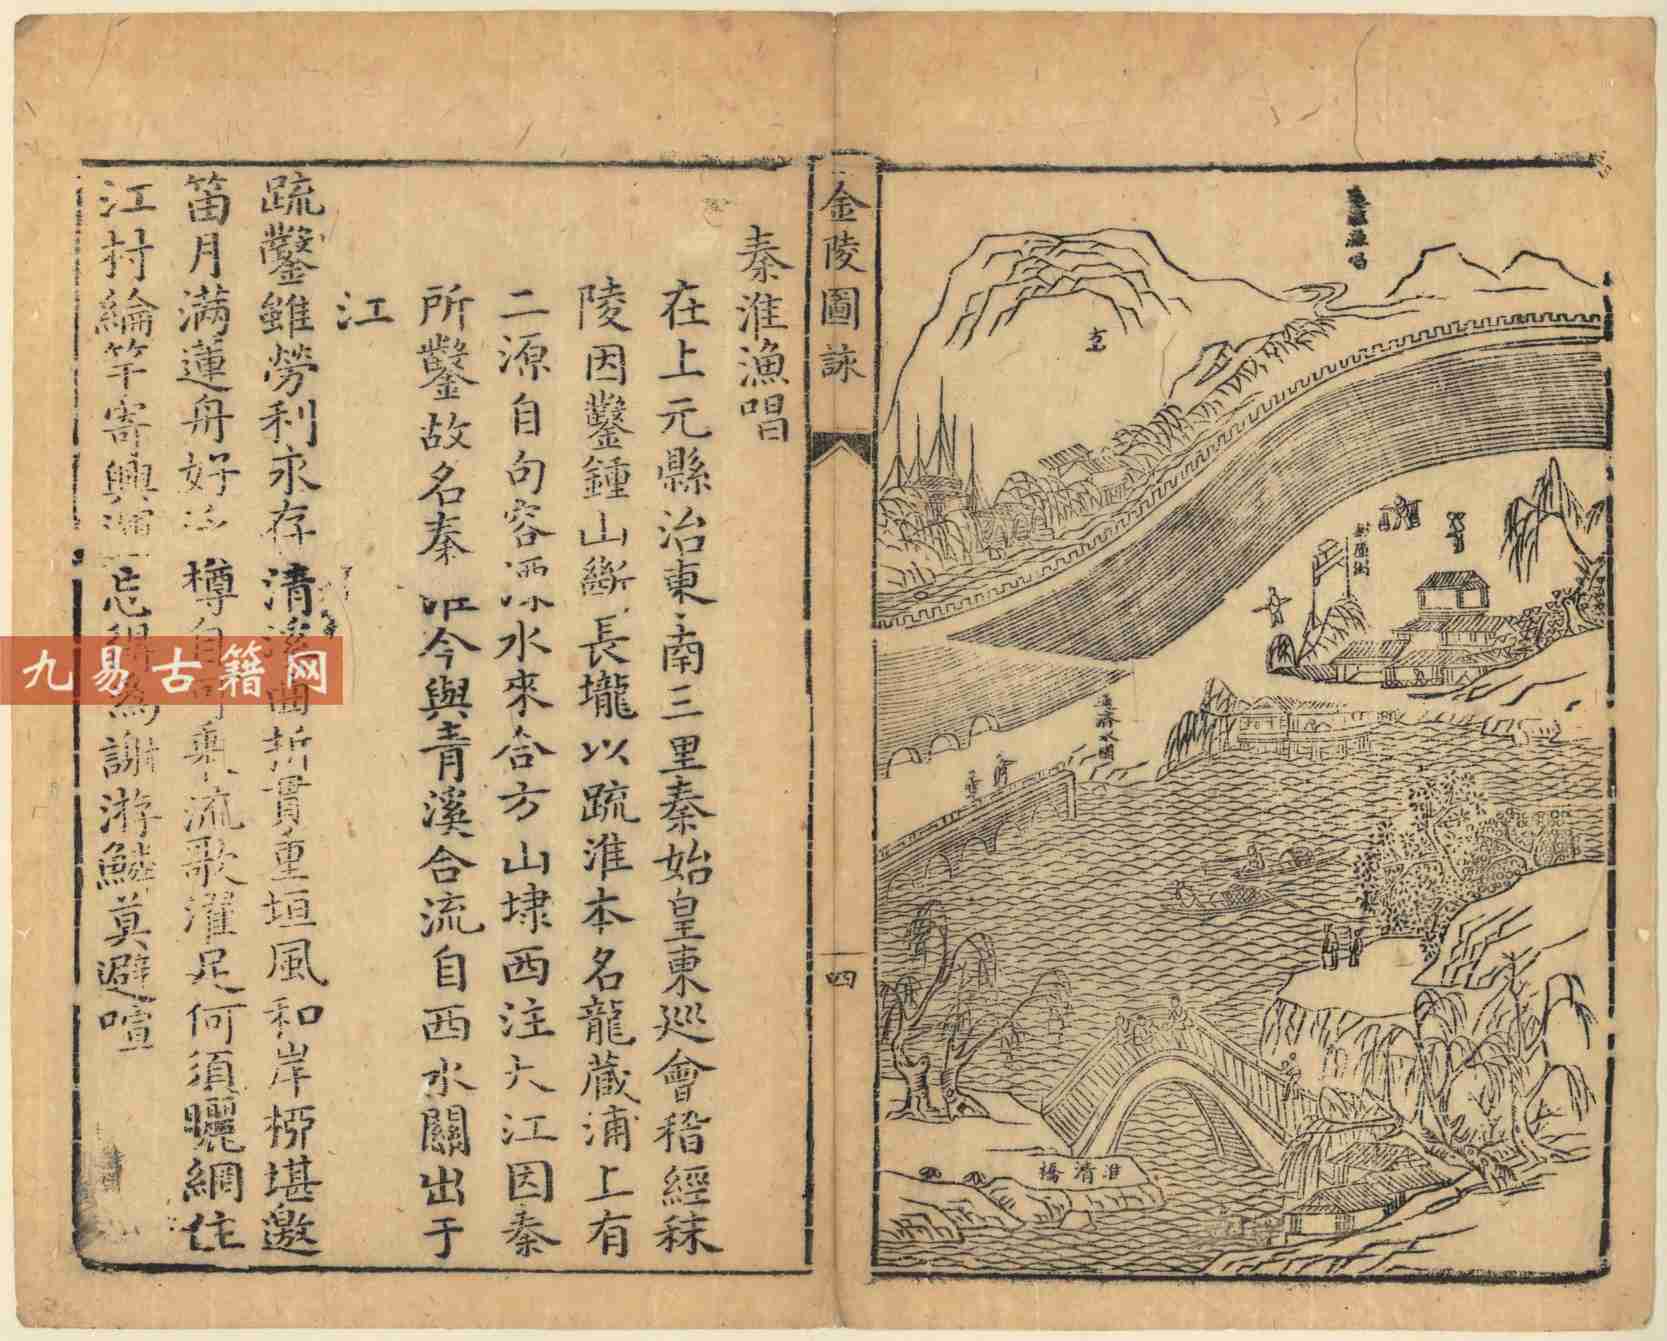 秦淮漁唱
方山
通濟水關
淮清橋
金陵圖詠
四
秦淮漁唱
在上元縣治東南三里秦始皇東巡會稽經秣
陵因鑿鍾山斷長壠以疏淮本名龍藏浦上有
二源自句容溧水來合方山埭西注大江因秦
所鑿故名秦淮今與青溪合流自西水關出于
江
疏鑿雖勞利永存清溪曲折貫重垣風和岸柳堪邀
笛月滿蓮舟好 樽自可乘流歌濯足何須曬網住
江村綸竿寄興 忘得為謝游鱗莫避喧
九易古籍网